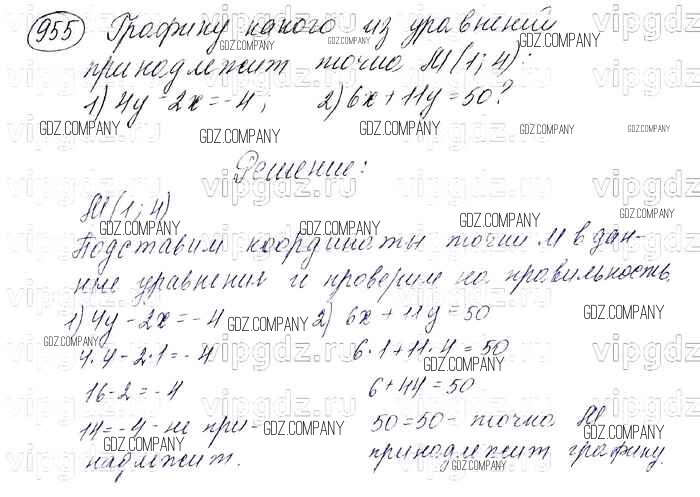 955 Графику какого из уравнений
принадлежит точка M(1; 4):
1) 4y - 2x = -4; 2) 6x + 11y = 50?
Решение:
M(1; 4)
Подставим координаты точки M в дан-
ные уравнения и проверим на правильность.
1) 4y - 2x = -4 2) 6x + 11y = 50
4·4 - 2·1 = -4 6·1 + 11·4 = 50
16 - 2 = -4 6 + 44 = 50
14 = -4 - не при- 50 = 50 - точка M
надлежит. принадлежит графику.